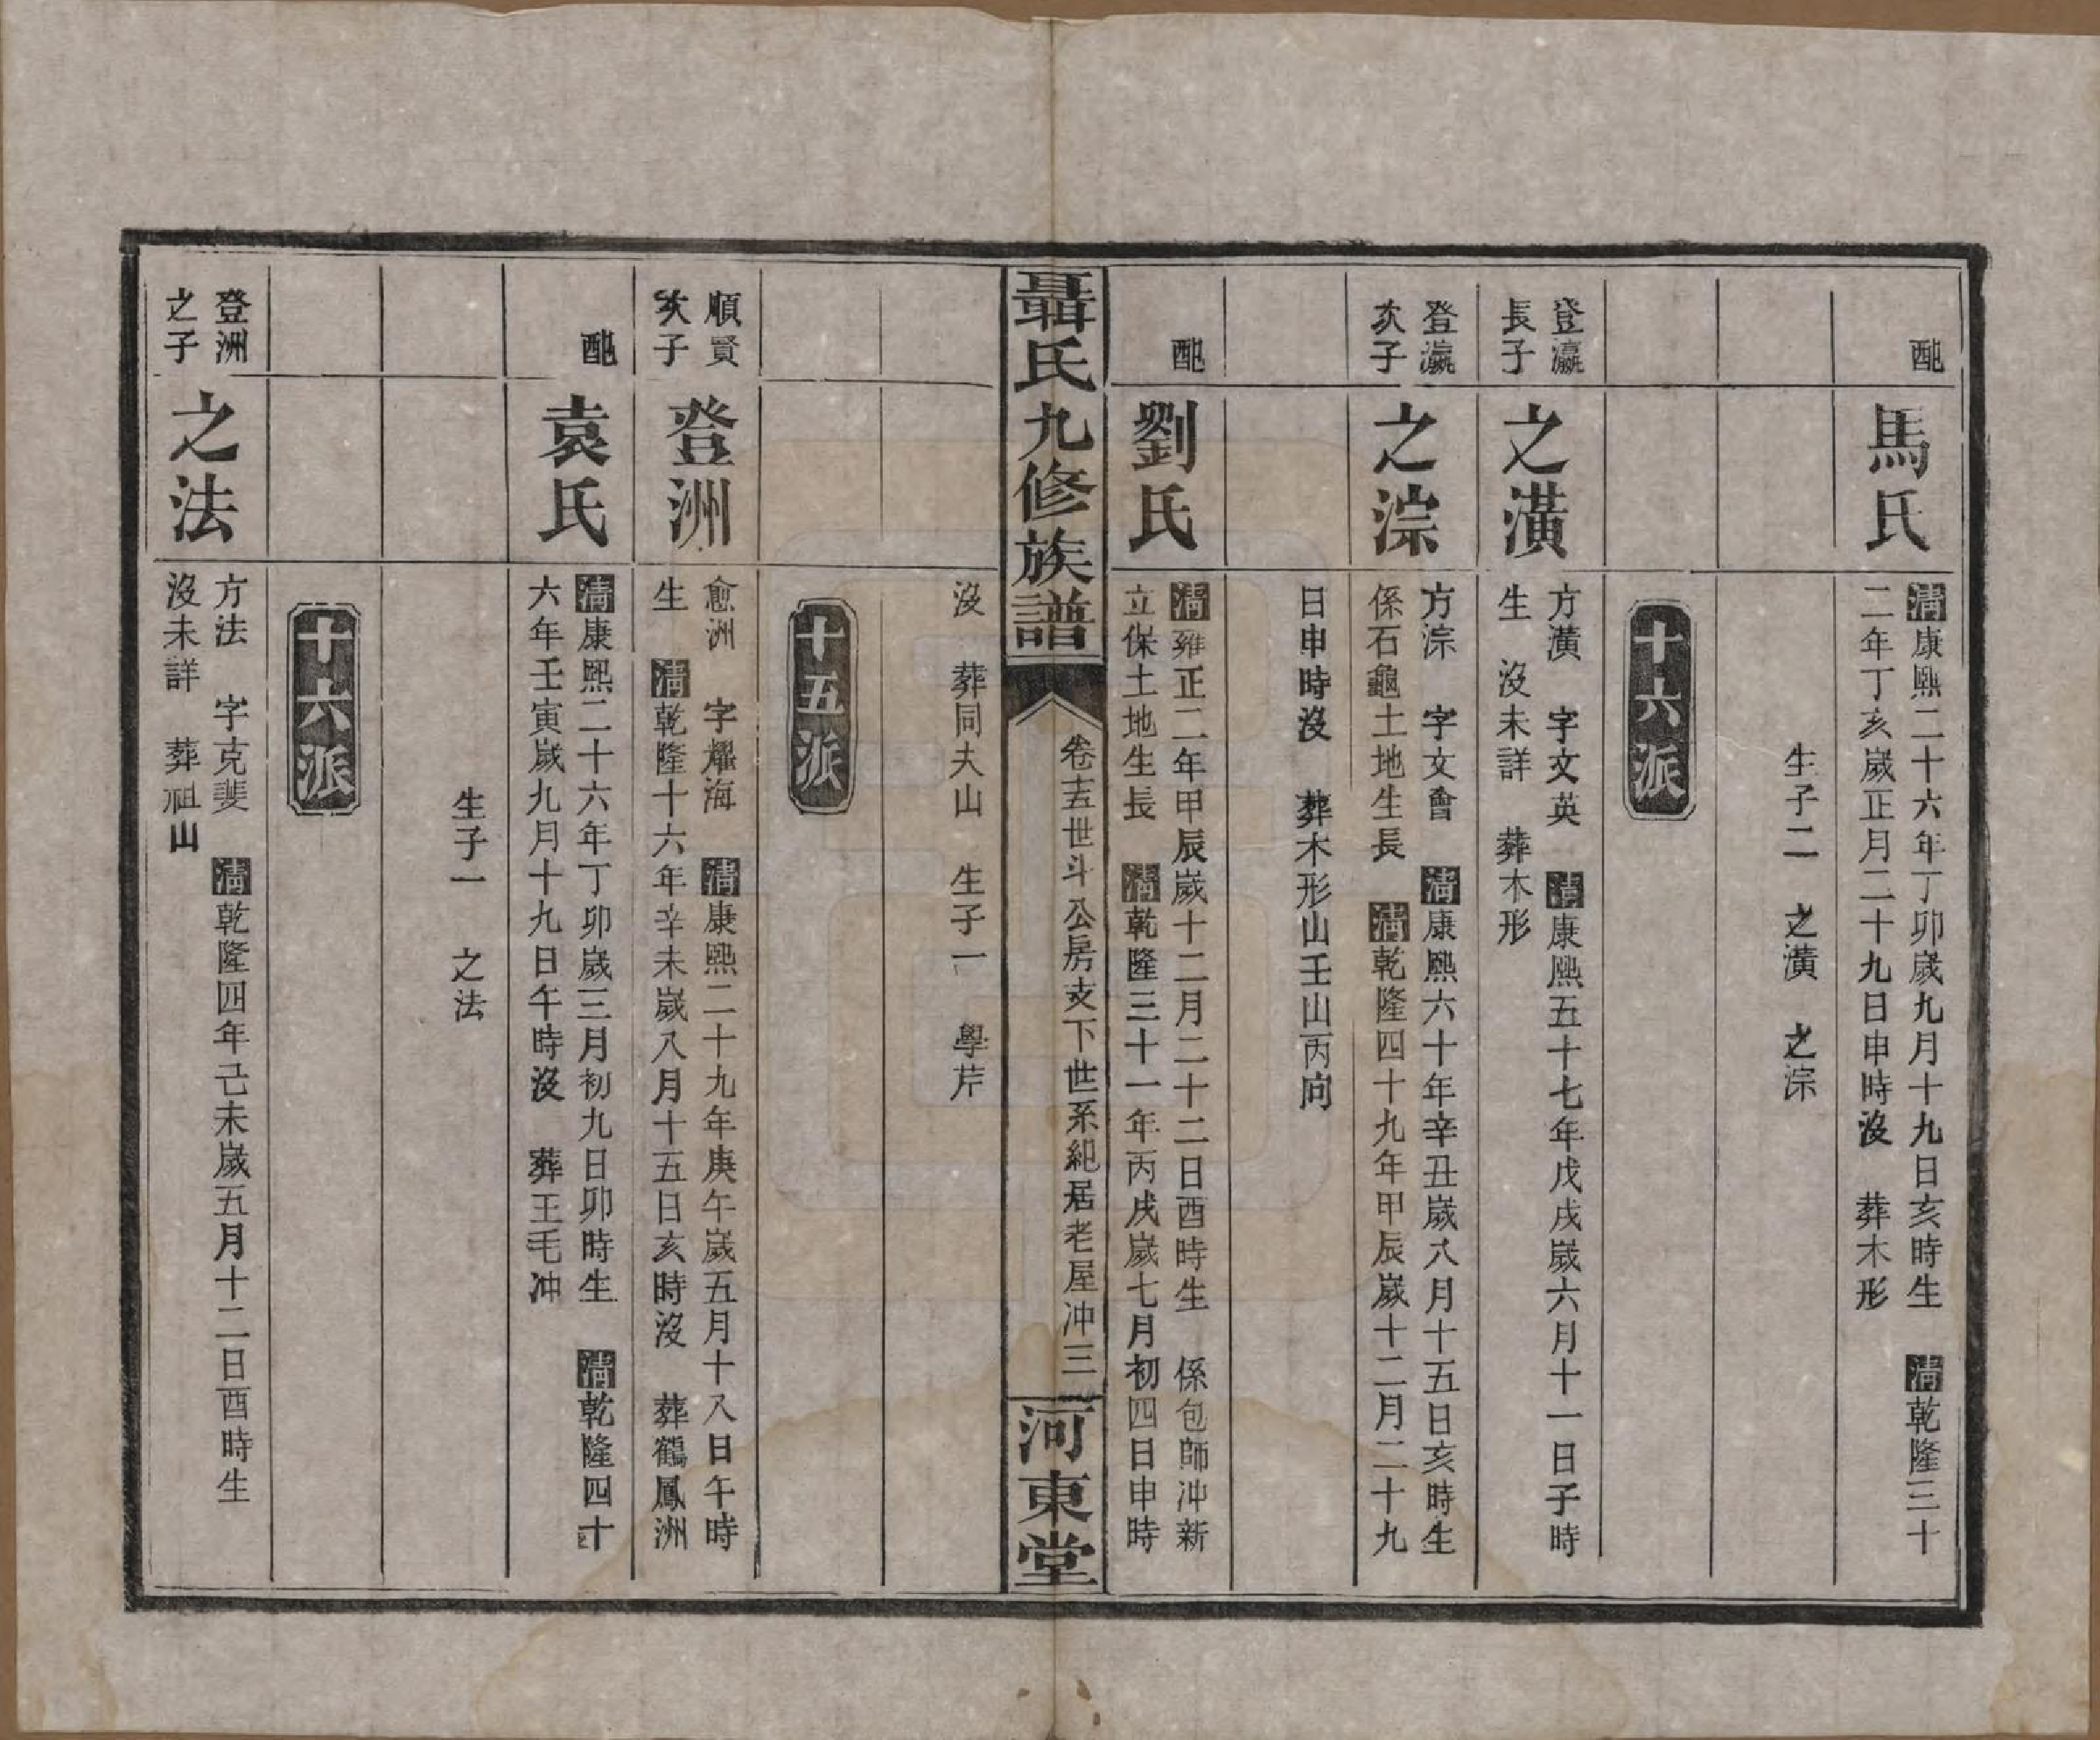 配
馬氏
清康熙二十六年丁卯歲九月十九日亥時生　清乾隆三十
二年丁亥歲正月二十九日申時沒　葬木形
生子二　之潢　之淙
十六派
登瀛
長子
之潢
方潢　字文英　清康熙五十七年戊戌歲六月十一日子時
生　沒未詳　葬木形
登瀛
次子
之淙
方淙　字文會　清康熙六十年辛丑歲八月十五日亥時生
係石龜土地生長　清乾隆四十九年甲辰歲十二月二十九
日申時沒　葬木形山壬山丙向
配
劉氏
清雍正二年甲辰歲十二月二十二日酉時生　係包師冲新
立保土地生長　清乾隆三十一年丙戌歲七月初四日申時
聶氏九修族譜
卷十五世斗公房支下世系紀居老屋冲三
河東堂
沒　葬同夫山　生子一　學芹
十五派
順賢
次子
登洲
愈洲　字耀海　清康熙二十九年庚午歲五月十八日午時
生　清乾隆十六年辛未歲八月十五日亥時沒　葬鶴鳳洲
配
袁氏
清康熙二十六年丁卯歲三月初九日卯時生　清乾隆四十
六年壬寅歲九月十九日午時沒　葬王毛冲
生子一　之法
十六派
登洲
之子
之法
方法　字克斐　清乾隆四年己未歲五月十二日酉時生
沒未詳　葬祖山